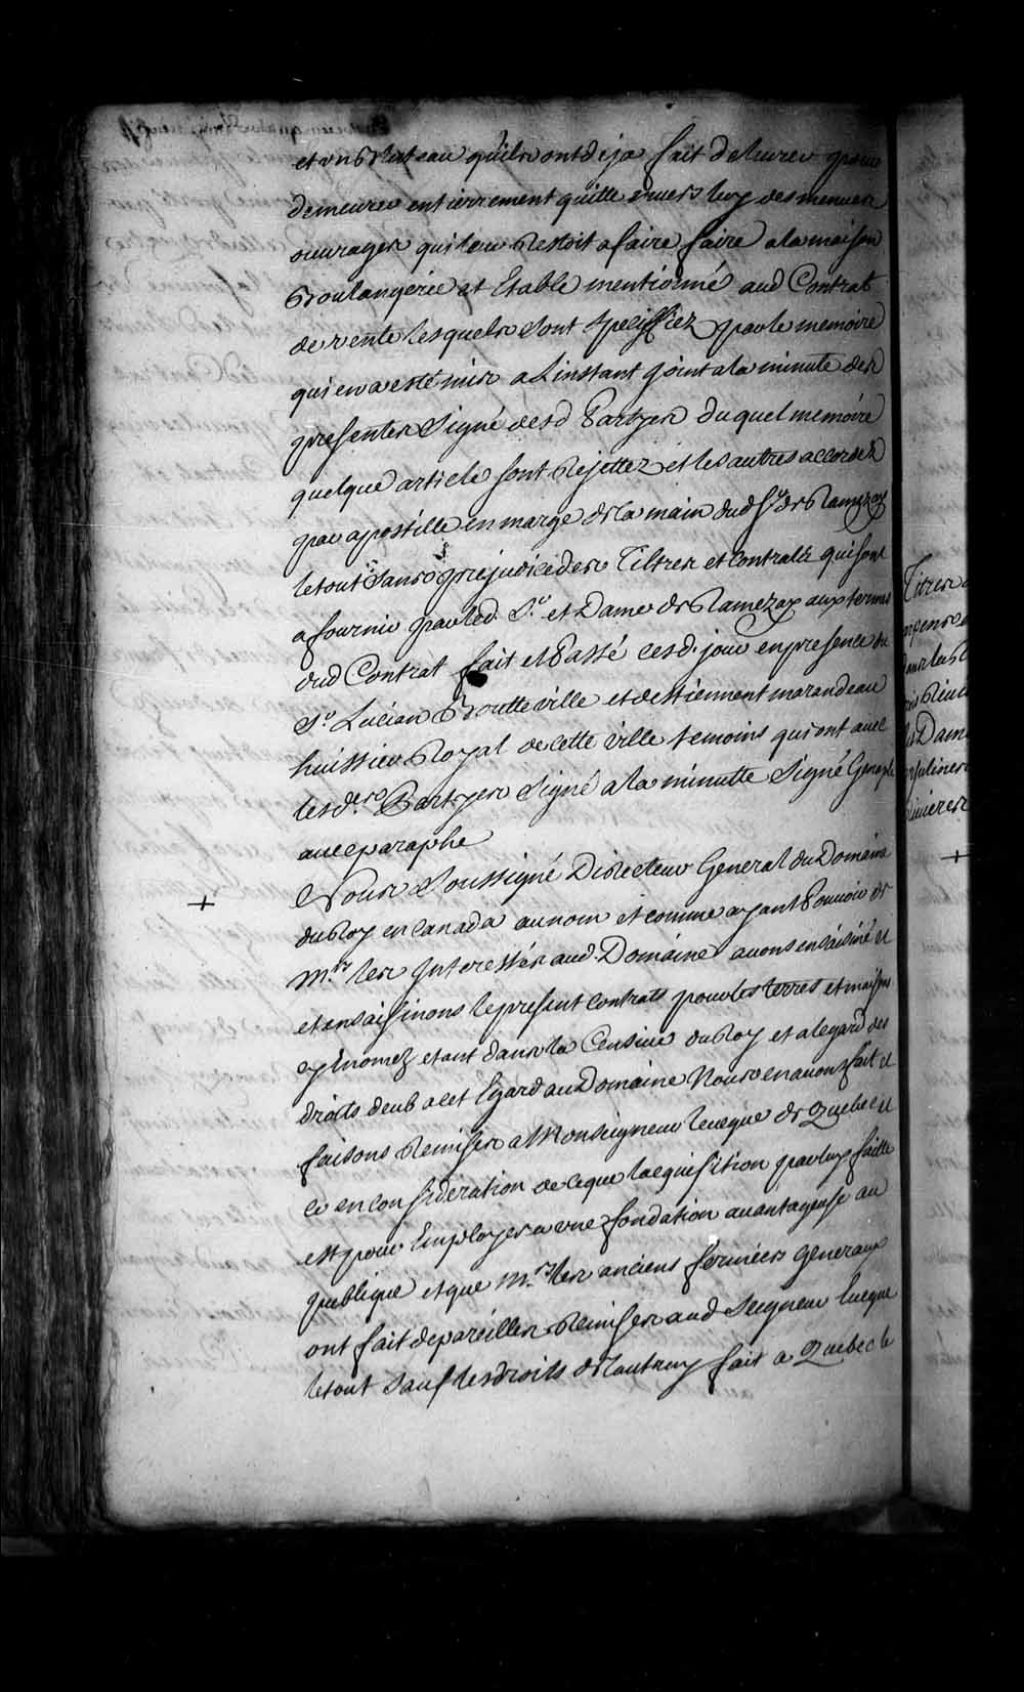 et un Batteau quils ont deja fait delivrer pour
demeurer entierrement quitte envers luy des menues
ouvrages quil leur Restoit a faire faire a la maison
Boulangerie et Etable mentionné aud Contrat
de vente lesquels sont speciffiez par le memoire
qui en a esté mis a Linstant joint a la minute des
presentes Signé desd Partyes duquel memoire
quelque article sont Rejettez et les autres accordez
par apostille en marge de la main dud Sr de Ramezay
le tout sans prejudice des Tiltres et Contrats qui sont
a fournir par led. Sr et Dame de Ramezay aux termes
dud Contrat fait et Passé cesd. jour en presence de
Sr Lucien Boutteville et destiennent marandeau
huissier Royal de cette ville temoins qui ont avec
lesd. Partyes Signé a la minutte Signé Genaple
avec paraphe
Nous Soussigné Directeur General du Domaine
du Roy en Canada au nom et comme ayant Pouvoir de
Mrs les Interessés aud. Domaine avons ensaisiné et
et ensaisinons le present contrats pour les terres et maisons
y nomez etant dans la Censive du Roy et a legard des
droits deub a cet Egard au Domaine Nous en avons fait et
faisons Remises a Monseigneur leveque de Quebec et
ce en consideration de ce que lacquisition par luy faitte
est pour Employer a une fondation avantageuse au
publique et que Mrs les anciens fermiers generaux
ont fait de pareilles Remises aud Seigneur Eveque
le tout sauf les droits dautruy fait a Quebec le
+
+
Titres
Dame